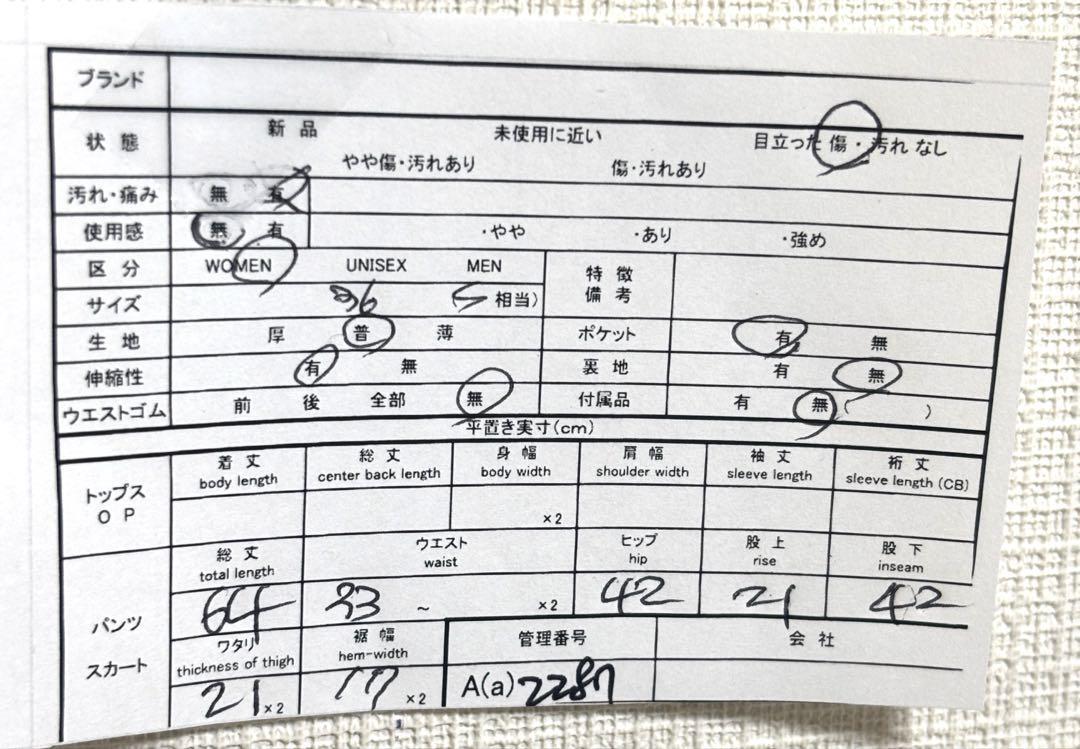 ブランド
状態 新品 未使用に近い 目立った傷・汚れなし
やや傷・汚れあり 傷・汚れあり
汚れ・痛み 無 有
使用感 無 有 ・やや ・あり ・強め
区分 WOMEN UNISEX MEN 特徴備考
サイズ 36 S 相当)
生地 厚 普 薄 ポケット 有 無
伸縮性 有 無 裏地 有 無
ウエストゴム 前 後 全部 無 付属品 有 無 ( )
平置き実寸(cm)
トップス OP 着丈 総丈 身幅 肩幅 袖丈 裄丈
body length center back length body width shoulder width sleeve length sleeve length (CB)
×2
パンツ スカート 総丈 ウエスト ヒップ 股上 股下
total length waist hip rise inseam
64 33 ~ ×2 42 21 42
ワタリ 裾幅 管理番号 会社
thickness of thigh hem-width
21 ×2 17 ×2 A(a) 2287